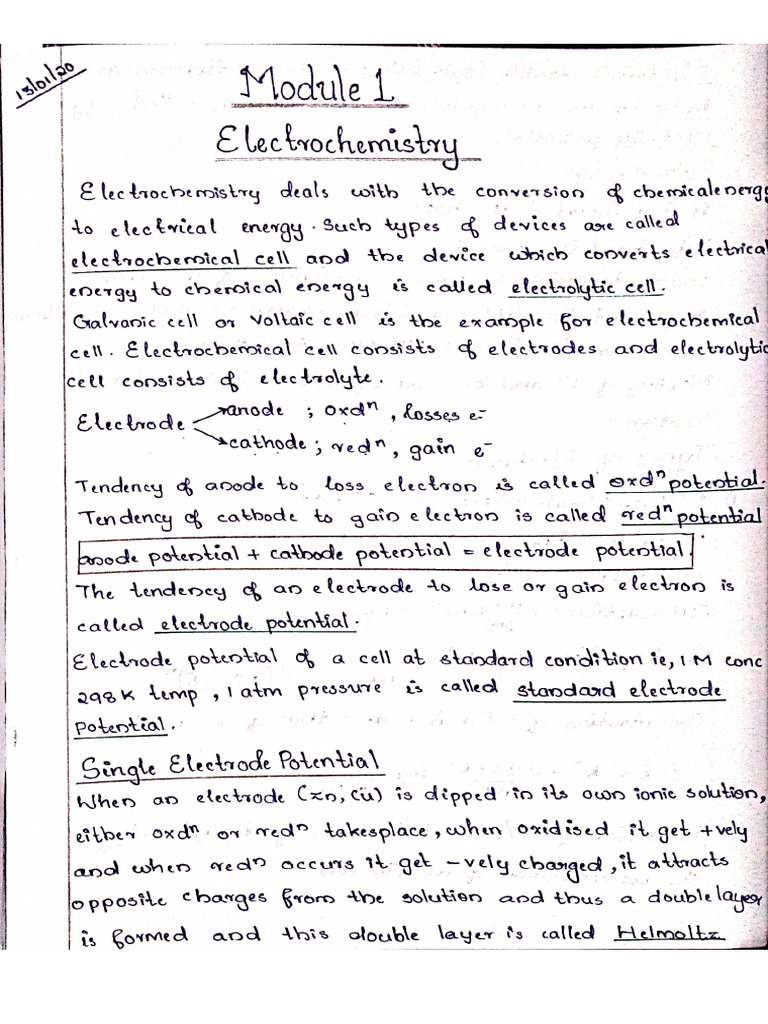 13/01/20
Module 1
Electrochemistry
Electrochemistry deals with the conversion of chemical energy
to electrical energy. Such types of devices are called
electrochemical cell and the device which converts electrical
energy to chemical energy is called electrolytic cell.
Galvanic cell or Voltaic cell is the example for electrochemical
cell. Electrochemical cell consists of electrodes and electrolytic
cell consists of electrolyte.
Electrode
anode ; oxdⁿ , losses e⁻
cathode ; redⁿ , gain e⁻
Tendency of anode to loss electron is called oxdⁿ potential.
Tendency of cathode to gain electron is called redⁿ potential
anode potential + cathode potential = electrode potential.
The tendency of an electrode to lose or gain electron is
called electrode potential.
Electrode potential of a cell at standard condition ie, 1 M conc
298K temp , 1 atm pressure is called standard electrode
potential.
Single Electrode Potential
When an electrode (Zn, Cu) is dipped in its own ionic solution,
either oxdⁿ or redⁿ takesplace, when oxidised it get +vely
and when redⁿ occurs it get -vely charged, it attracts
opposite charges from the solution and thus a double layer
is formed and this double layer is called Helmoltz